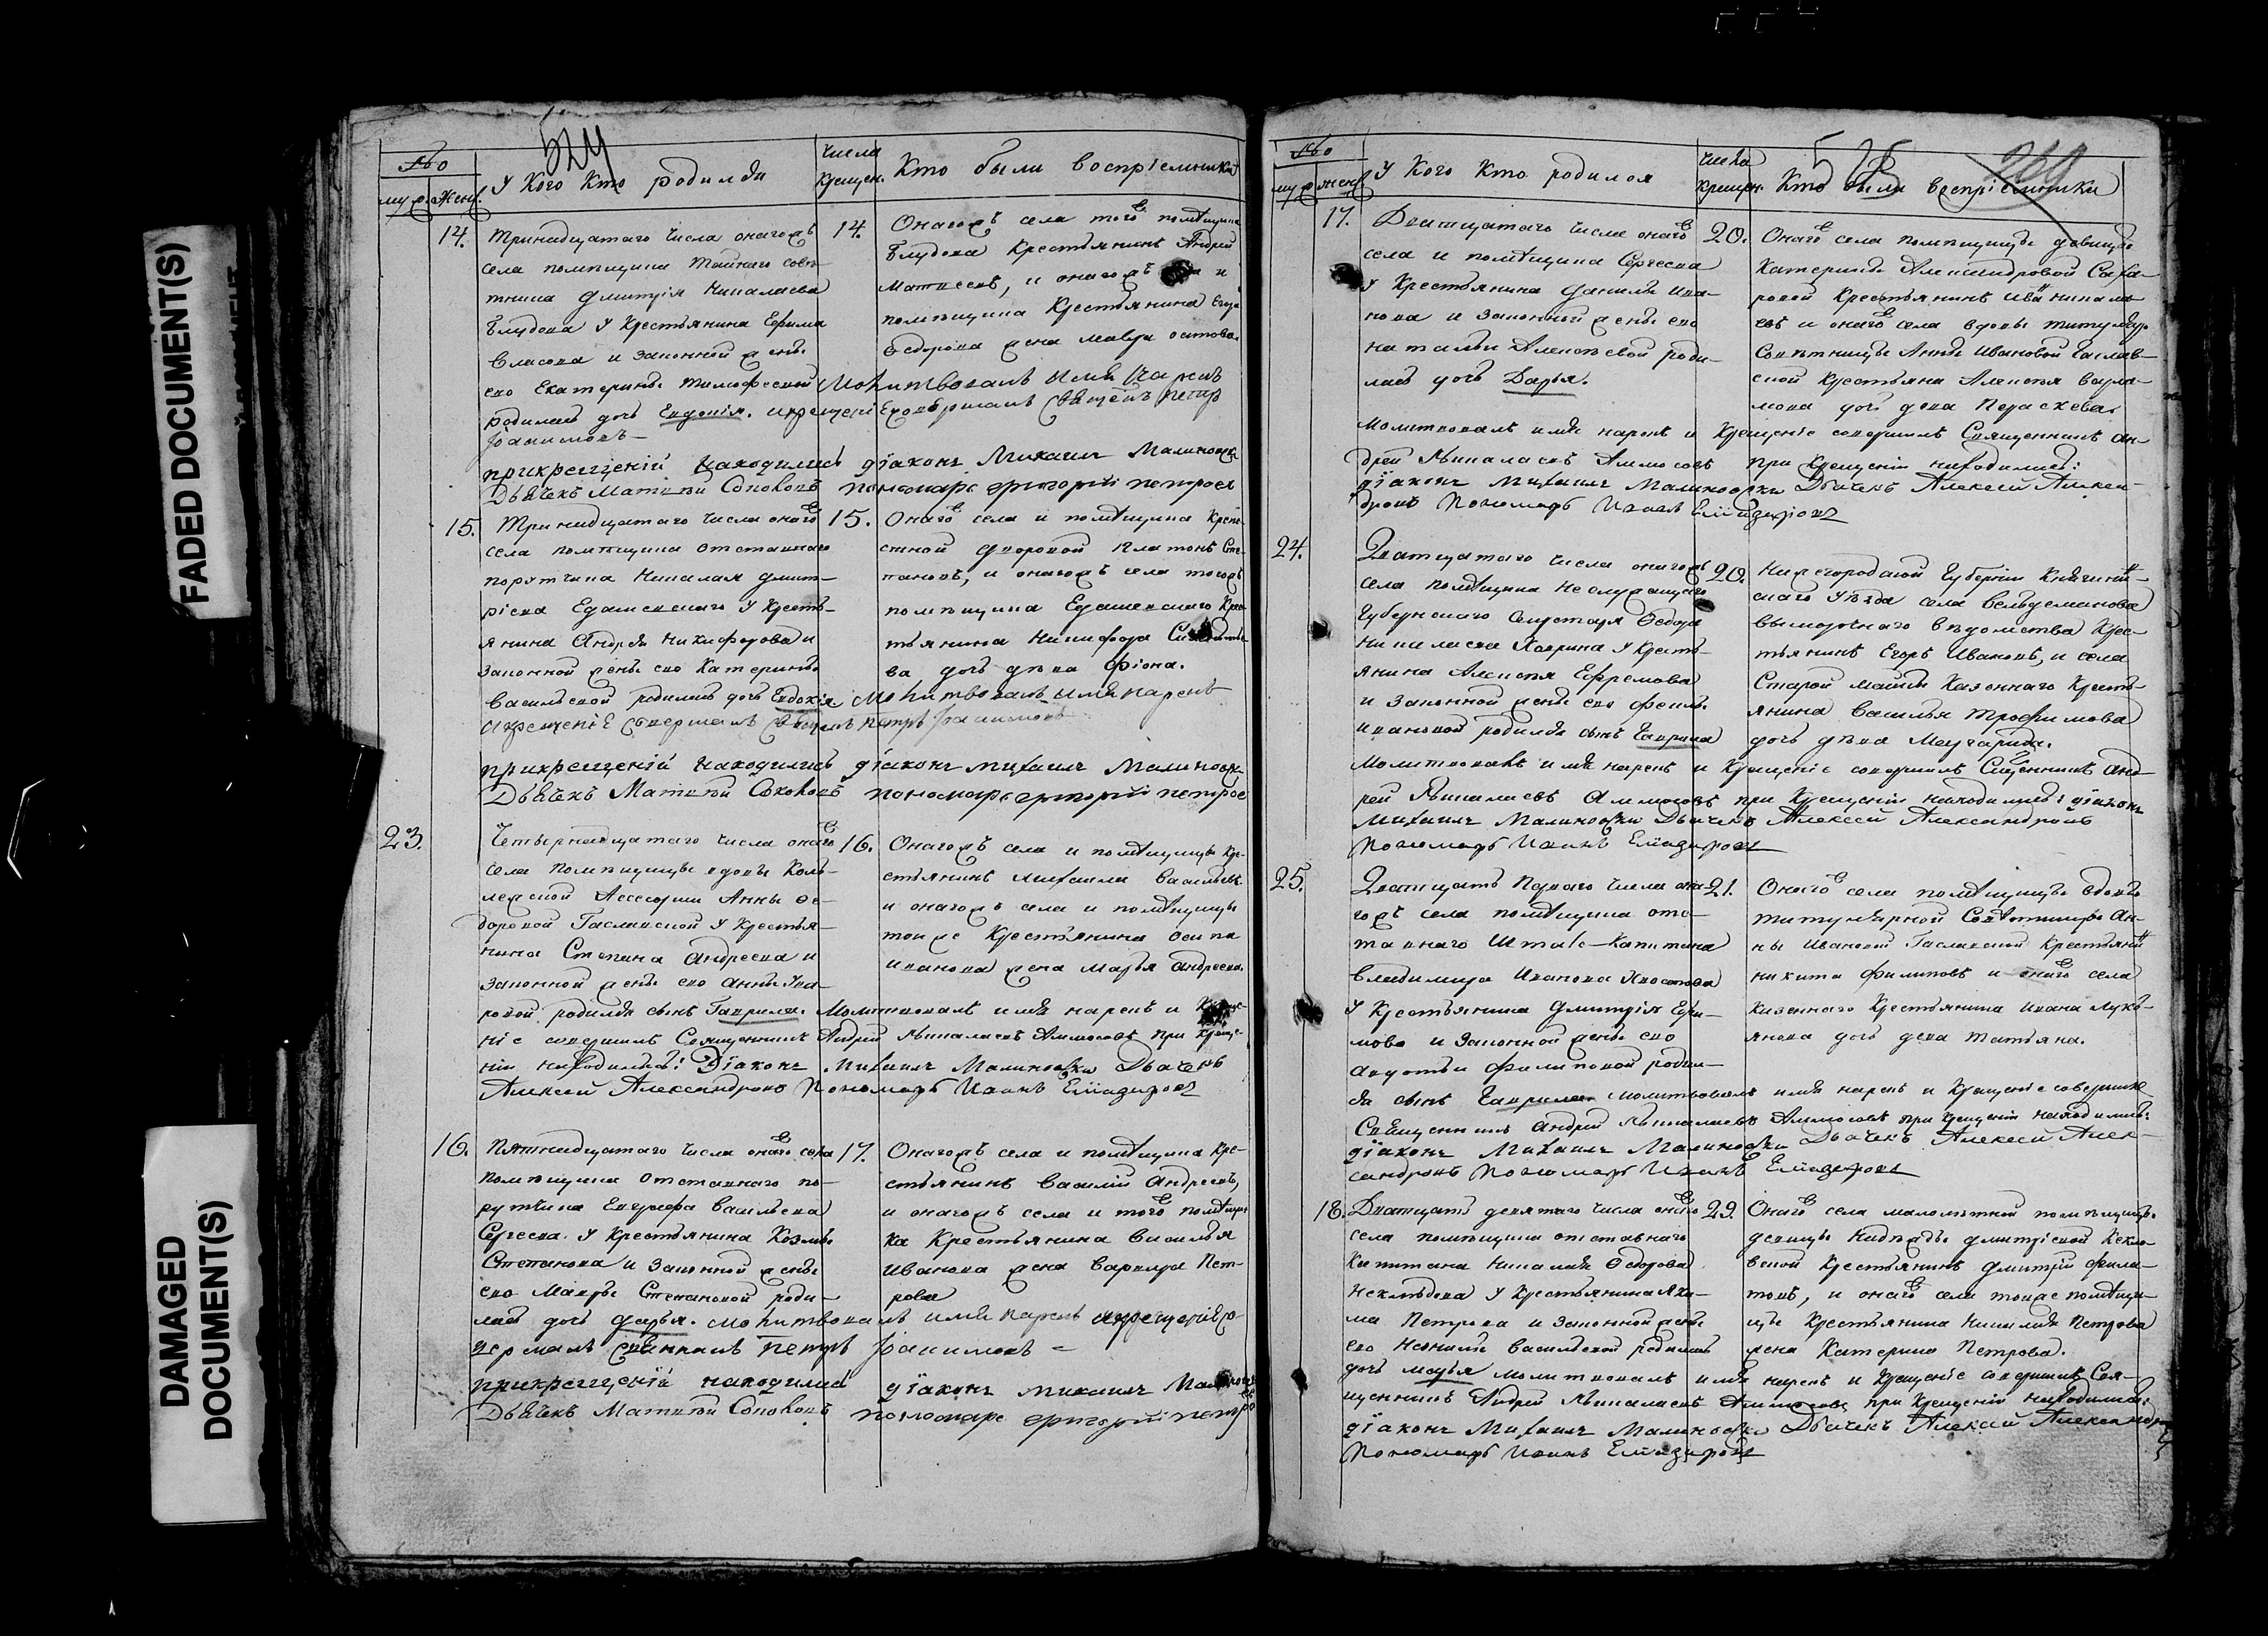 FADED DOCUMENT(S)
DAMAGED
DOCUMENT(S)
524
№
муж. жен. У Кого Кто родился
Числа
крещен.
Кто были воспрiемники
14. Тринадцатаго числа онагожъ
села помѣщика Тайнаго совѣ-
тника Дмитрiя Николаева
Блудова у Крестьянина Ефима
Власова и законной жены
его Екатерины Тимофеевой
родилась дочь Евдокiя.
14. Онагожъ села того помѣщика
Блудова Крестьянинъ Андрей
Матвеевъ, и онагожъ и
помѣщика Крестьянина Егора
Ѳедорова жена Мавра
Молитвовалъ имя нарекъ
и крещенiе совершалъ Священ. Петръ
Iоакимовъ
при крещенiи находились дiаконъ Михаилъ Малиновскi
Дьячекъ Матвѣй Соколовъ пономарь григорiй петровъ
15. Тринадцатаго числа онаго
села помѣщика отставнаго
порутчика Николая Дмит-
рiева Едашевскаго у Кресть-
янина Андрея Никифорова и
законной жены его Катерины
Васильевой родилась дочь Евдокiя.
15. Онаго села и помѣщика Крепо-
стной дворовой Платонъ Сте-
пановъ, и онагожъ села тогожъ
помѣщика Едашевскаго Крес-
тьянина Никифора
ва дочь дѣва Фiона.
Молитвовалъ имя нарекъ
и крещенiе совершалъ Священ. Петръ Iоакимовъ
при крещенiи находились дiаконъ михаилъ Малиновск.
Дьячекъ Матвѣй Соколовъ пономарь григорiй петров
23. Четырнадцатаго числа онаго
села помѣщицы вдовы Кол-
лежской Ассесорши Анны Ѳе-
доровой Гаславской у Крестья-
нина Степана Андреева и
законной жены его Анны
ровой родился сынъ Гаврила.
16. Онагожъ села и помѣщицы Кре-
стьянинъ Михаила Васильевъ
и онагожъ села и помѣщицы
тоиже Крестьянина Осипа
Иванова жена Марья Андреева.
Молитвовалъ имя нарекъ и Креще-
нiе совершилъ Священникъ Андрей Николаевъ Аммосовъ при Креще-
нiи находились: Дiаконъ Михаилъ Малиновски Дьячекъ
Алексей Александровъ Пономарь Иванъ Елпидифоровъ
16. Пятнадцатаго числа онаго села
помѣщика отставнаго по-
рутчика Евграфа Васильева
Сергеева у Крестьянина Козьмы
Степанова и законной жены
его Мавры Степановой роди-
лась дочь дарья.
17. Онагожъ села и помѣщика Кре-
стьянинъ Василiй Андреевъ,
и онагожъ села и того помѣщи-
ка Крестьянина Василья
Иванова жена Варвара Пет-
рова
молитвовалъ имя нарекъ и крещенiе со-
вершалъ священникъ Петръ Iоакимовъ
при крещенiи находились дiаконъ михаилъ
Дьячекъ Матвѣй Соколовъ пономарь григорiй петро
525 269
№
муж. жен. У Кого Кто родился
Числа
крещен.
Кто были воспрiемники
17. Дватцатаго числа онаго
села и помѣщика Сергеева
у Крестьянина Данилы Ива-
нова и законной жены его
Натальи Алексѣевой роди-
лась дочь Дарья.
20. Онаго села помѣщицы девицы
Катерины Александровой Саха-
ровой Крестьянинъ Иванъ никола-
евъ и онаго села вдовы титулярн
Советницы Анны Ивановой Гаслав-
ской Крестьяна Алексѣя Варла-
мова дочь дева Параскева.
Молитвовалъ имя нарекъ и Крещенiе совершилъ Священникъ Ан-
дрей Николаевъ Аммосовъ при Крещенiи находились:
дiаконъ Михаилъ Малиновски Дьячекъ Алексей Алексан-
дровъ Пономарь Иванъ Елпидифоровъ
24. Дватцатаго числа онагожъ
села помѣщика неслужащаго
Губернскаго Секретаря Ѳедора
Николаева у Кресть-
янина Алексѣя Ефремова
и законной жены его
Ивановой родился сынъ Гаврила
20. Нижегородской Губернiи Княгинин-
скаго Уѣзда села Вельдеманова
ведомства Крес-
тьянинъ Егоръ Ивановъ, и села
Старой Казеннаго Кресть-
янина Василья Трофимова
дочь дѣва Маргарида.
Молитвовалъ имя нарекъ и Крещенiе совершилъ Священникъ Анд-
рей Николаевъ Аммосовъ при Крещенiи находились: дiаконъ
Михаилъ Малиновски Дьячекъ Алексей Александровъ
Пономарь Иванъ Елпидифоровъ
25. Двадцать перваго числа она-
гожъ села помѣщика отс-
тавнаго Штапс-Капитана
Владимира Иванова
у Крестьянина Дмитрiя Ефи-
мова и законной жены его
Авдотьи Филиповой родил-
ся сынъ Гаврила.
21. Онаго села помѣщицы вдовы
титулярной Советницы Ан-
ны Ивановой Гаславской Крестьянинъ
никита Филиповъ и онаго села
казеннаго Крестьянина Ивана Лукъ-
янова дочь дева Татьяна.
Молитвовалъ имя нарекъ и Крещенiе совершилъ
Священникъ Андрей Николаевъ Аммосовъ при Крещенiи находились:
дiаконъ Михаилъ Малиновски Дьячекъ Алексей Алек-
сандровъ Пономарь Иванъ Елпидифоровъ
18. Дватцать девятаго числа онаго
села помѣщика отставнаго
Капитана Николая Ѳедорова
у Крестьянина Яки-
ма Петрова и законной жены
его Неонилы Васильевой родилась
дочь марья
29. Онаго села малолѣтной помѣщицы
девицы Надежды Дмитрiевой
Крестьянинъ Дмитрiй Фили-
повъ, и онаго села тоиже помѣщи-
цы Крестьянина Николая Петрова
жена Катерина Петрова.
молитвовалъ имя нарекъ и Крещенiе совершилъ Свя-
щенникъ Андрей Николаевъ Аммосовъ при Крещенiи находились:
дiаконъ Михаилъ Малиновски Дьячекъ Алексей Александро
Пономарь Иванъ Елпидифоровъ